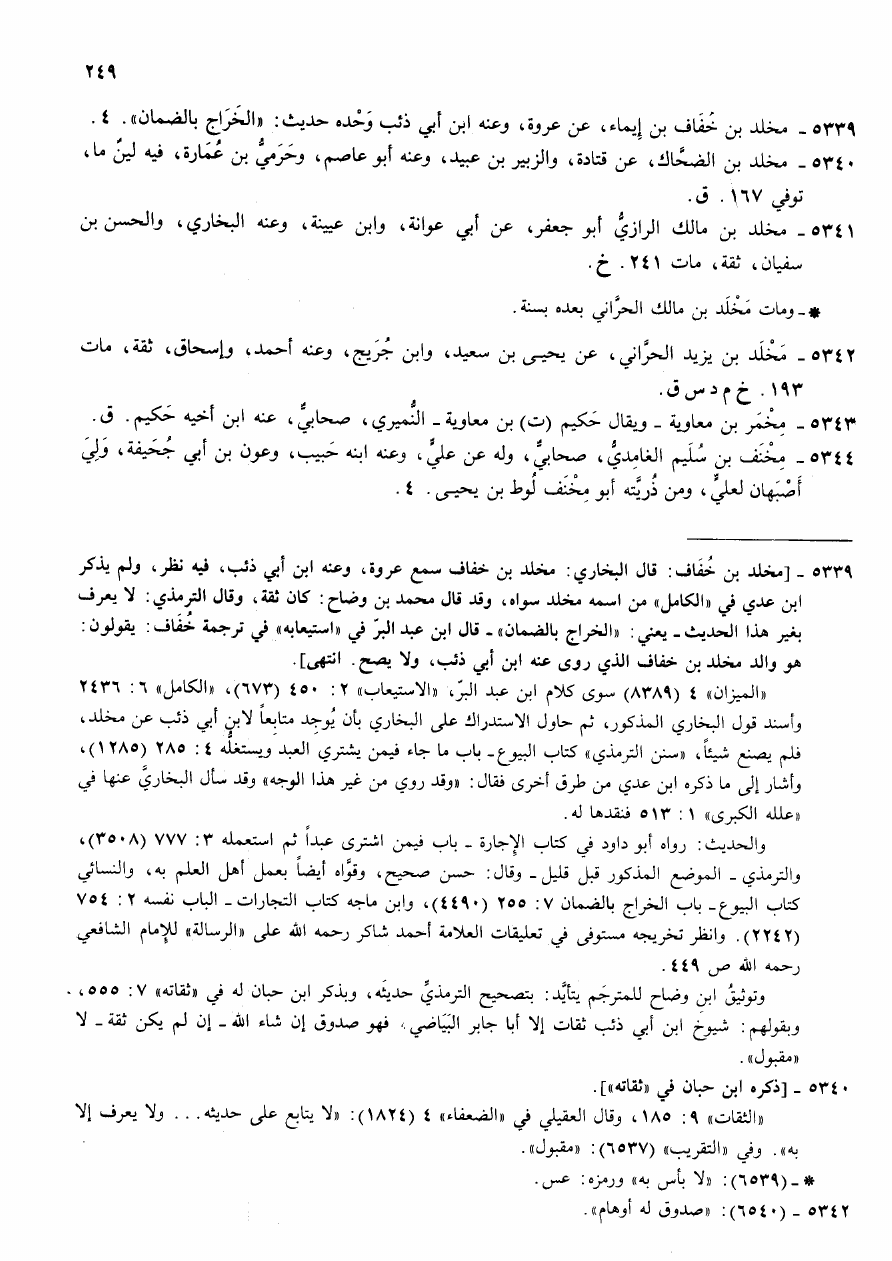 ٢٤٩
٥٣٣٩ ـ مخلد بن خُفَاف بن إيماء، عن عروة، وعنه ابن أبي ذئب وَحْده حديث: «الخَرَاج بالضمان». ٤.
٥٣٤٠ ـ مخلد بن الضحَّاك، عن قتادة، والزبير بن عبيد، وعنه أبو عاصم، وحَرَميُّ بن عُمَارة، فيه لينٌ ما،
توفي ١٦٧. ق.
٥٣٤١ ـ مخلد بن مالك الرازيُّ أبو جعفر، عن أبي عوانة، وابن عيينة، وعنه البخاري، والحسن بن
سفيان، ثقة، مات ٢٤١. خ.
* ـ ومات مَخْلَد بن مالك الحرَّاني بعده بسنة.
٥٣٤٢ ـ مَخْلَد بن يزيد الحرَّاني، عن يحيى بن سعيد، وابن جُرَيج، وعنه أحمد، وإسحاق، ثقة، مات
١٩٣. خ م د س ق.
٥٣٤٣ ـ مِخْمَر بن معاوية ـ ويقال حَكيم (ت) بن معاوية ـ النُّميري، صحابيٌّ، عنه ابن أخيه حَكيم. ق.
٥٣٤٤ ـ مِخْنَف بن سُلَيم الغامِديُّ، صحابيٌّ، وله عن عليٍّ، وعنه ابنه حَبيب، وعون بن أبي جُحَيفة، وَلِيَ
أَصْبَهان لعليٍّ، ومن ذُريَّته أبو مِخْنَف لُوط بن يحيى. ٤.
٥٣٣٩ ـ [مخلد بن خُفَاف: قال البخاري: مخلد بن خفاف سمع عروة، وعنه ابن أبي ذئب، فيه نظر، ولم يذكر
ابن عدي في «الكامل» من اسمه مخلد سواه، وقد قال محمد بن وضاح: كان ثقة، وقال الترمذي: لا يعرف
بغير هذا الحديث ـ يعني: «الخراج بالضمان» ـ قال ابن عبد البرّ في «استيعابه» في ترجمة خُفَاف: يقولون:
هو والد مخلد بن خفاف الذي روى عنه ابن أبي ذئب، ولا يصح. انتهى].
«الميزان» ٤ (٨٣٨٩) سوى كلام ابن عبد البرّ، «الاستيعاب» ٢: ٤٥٠ (٦٧٣)، «الكامل» ٦: ٢٤٣٦
وأسند قول البخاري المذكور، ثم حاول الاستدراك على البخاري بأن يُوجِد متابِعاً لابن أبي ذئب عن مخلد،
فلم يصنع شيئاً، «سنن الترمذي» كتاب البيوع ـ باب ما جاء فيمن يشتري العبد ويستغلُّه ٤: ٢٨٥ (١٢٨٥)،
وأشار إلى ما ذكره ابن عدي من طرق أخرى فقال: «وقد روي من غير هذا الوجه» وقد سأل البخاريَّ عنها في
«علله الكبرى» ١: ٥١٣ فنقدها له.
والحديث: رواه أبو داود في كتاب الإجارة ـ باب فيمن اشترى عبداً ثم استعمله ٣: ٧٧٧ (٣٥٠٨)،
والترمذي ـ الموضع المذكور قبل قليل ـ وقال: حسن صحيح، وقوَّاه أيضاً بعمل أهل العلم به، والنسائي
كتاب البيوع ـ باب الخراج بالضمان ٧: ٢٥٥ (٤٤٩٠)، وابن ماجه كتاب التجارات ـ الباب نفسه ٢: ٧٥٤
(٢٢٤٢). وانظر تخريجه مستوفى في تعليقات العلامة أحمد شاكر رحمه الله على «الرسالة» للإمام الشافعي
رحمه الله ص ٤٤٩.
وتوثيقُ ابنِ وضاح للمترجَم يتأيَّد: بتصحيح الترمذيِّ حديثَه، وبذكر ابن حبان له في «ثقاته» ٧: ٥٥٥،
وبقولهم: شيوخ ابن أبي ذئب ثقات إلا أبا جابر البَيَاضي، فهو صدوق إن شاء الله ـ إن لم يكن ثقة ـ لا
«مقبول».
٥٣٤٠ ـ [ذكره ابن حبان في «ثقاته»].
«الثقات» ٩: ١٨٥، وقال العقيلي في «الضعفاء» ٤ (١٨٢٤): «لا يتابع على حديثه... ولا يعرف إلا
به». وفي «التقريب» (٦٥٣٧): «مقبول».
* ـ (٦٥٣٩): «لا بأس به» ورمزه: عس.
٥٣٤٢ ـ (٦٥٤٠): «صدوق له أوهام».